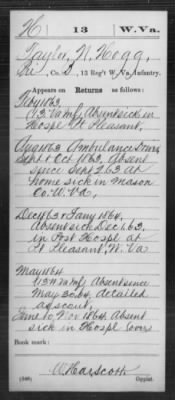 H | 13 | W.Va.
Taylor, N. Hogg,
Co. D, 13 Reg't W. Va. Infantry.
Appears on Returns as follows:
Feby 1863,
Absent sick in
Hospl Pt Pleasant,
Aug 1863 Ambulance
Sept & Oct 1863, Absent
since Sept 2.63 at
home sick in Mason
Co. W. Va,
Dec 1863 & Jany 1864,
Absent sick Dec 1, 63,
in Post Hospl at
Pt Pleasant, W. Va
May 1864
Absent since
May 30.64, detailed
as scout,
June to Nov 1864 Absent
sick in Hospl
Book mark:
W Harscott
(546) Copyist.